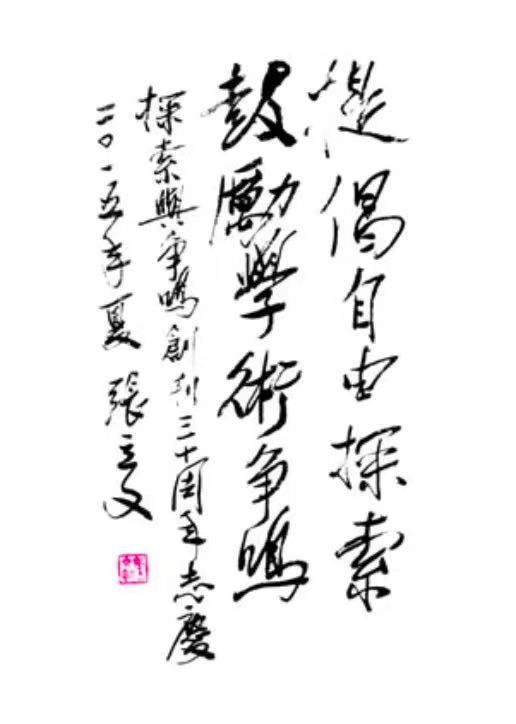 提倡自由探索
鼓勵學術争鳴
探索與争鳴創刊三十周年志慶
二〇一五年夏 張立文